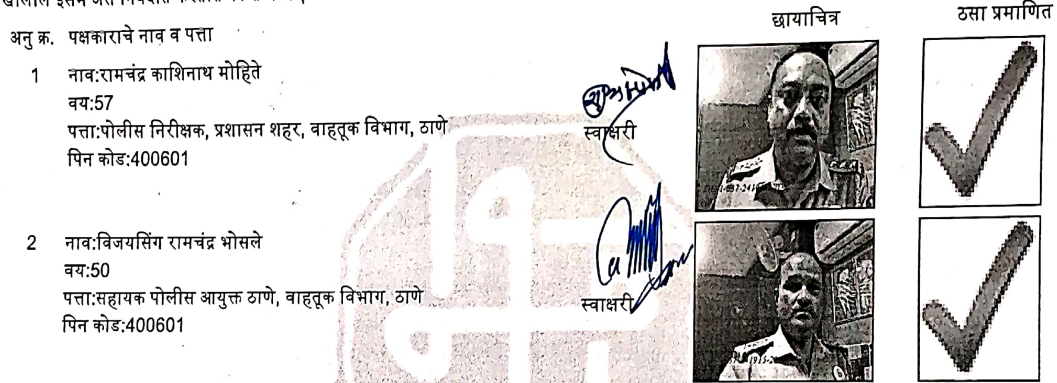 छायाचित्र
ठसा प्रमाणित
अनु क्र. पक्षकाराचे नाव व पत्ता
1 नाव:रामचंद्र काशिनाथ मोहिते
वय:57
पत्ता:पोलीस निरीक्षक, प्रशासन शहर, वाहतूक विभाग, ठाणे
पिन कोड:400601
स्वाक्षरी
2 नाव:विजयसिंग रामचंद्र भोसले
वय:50
पत्ता:सहायक पोलीस आयुक्त ठाणे, वाहतूक विभाग, ठाणे
पिन कोड:400601
स्वाक्षरी